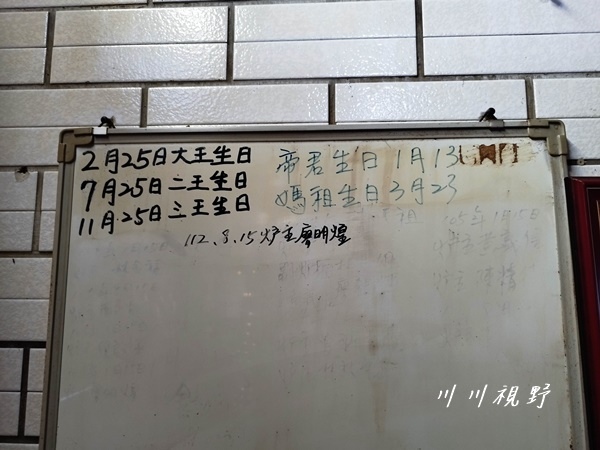 2月25日大王生日
7月25日二王生日
11月25日三王生日
帝君生日1月13
媽祖生日3月23
112.8.15炉主廖明煌
川川視野